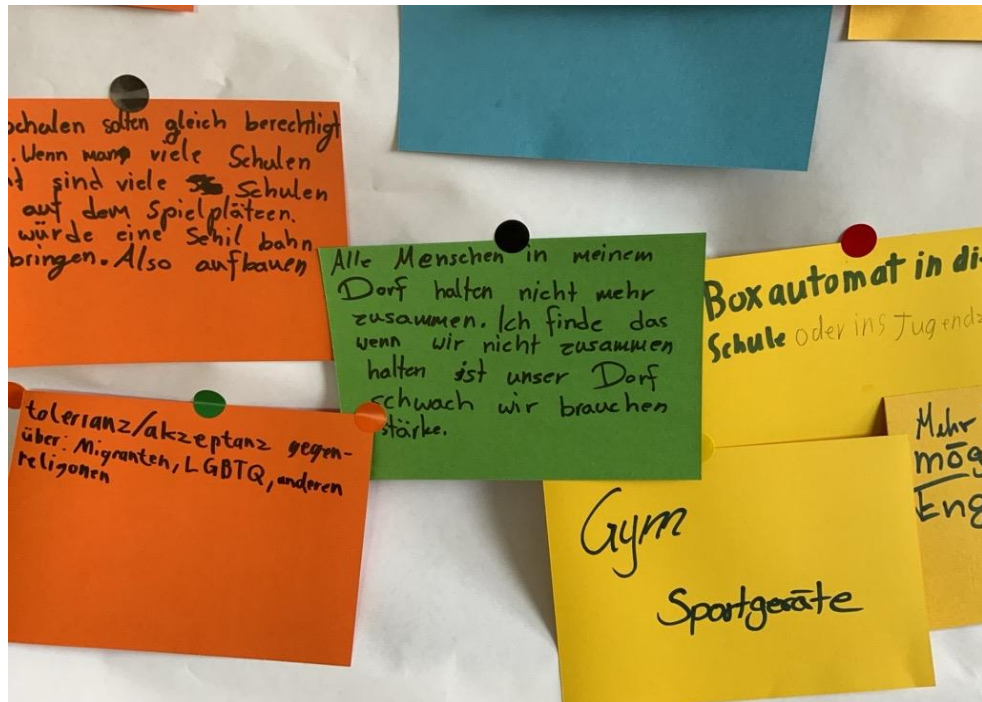 schulen solten gleich berechtigt
. Wenn man viele Schulen
sind viele Schulen
auf dem Spielpläteen.
würde eine Schil bahn
bringen. Also aufbauen
Alle Menschen in meinem
Dorf halten nicht mehr
zusammen. Ich finde das
wenn wir nicht zusammen
halten ist unser Dorf
schwach wir brauchen
stärke.
Box automat in di
Schule oder ins Jugendz
tolerianz/akzeptanz gegen-
über: Migranten, LGBTQ, anderen
religonen
Gym
Sportgeräte
Mehr
mög
Eng